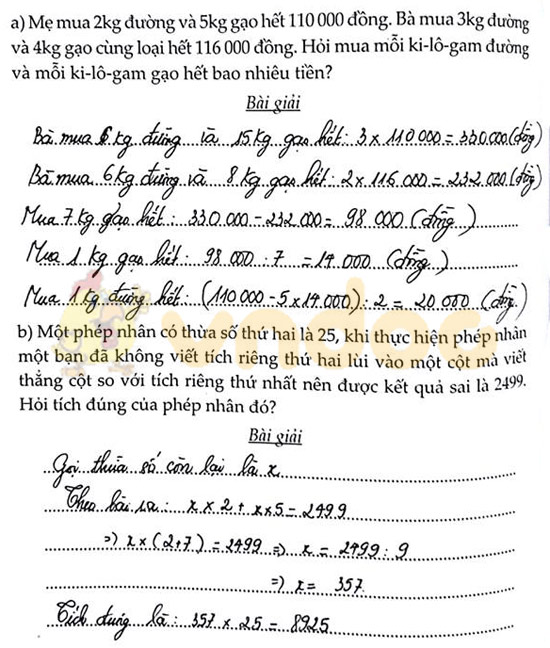 a) Mẹ mua 2kg đường và 5kg gạo hết 110 000 đồng. Bà mua 3kg đường
và 4kg gạo cùng loại hết 116 000 đồng. Hỏi mua mỗi ki-lô-gam đường
và mỗi ki-lô-gam gạo hết bao nhiêu tiền?
Bài giải
Bà mua 6 kg đường và 15kg gạo hết: 3 x 110 000 = 330 000 (đồng)
Bà mua 6 kg đường và 8 kg gạo hết: 2 x 116 000 = 232 000 (đồng)
Mua 7 kg gạo hết: 330 000 - 232 000 = 98 000 (đồng)
Mua 1 kg gạo hết: 98 000 : 7 = 14 000 (đồng)
Mua 1 kg đường hết: (110 000 - 5 x 14 000) : 2 = 20 000 (đồng)
b) Một phép nhân có thừa số thứ hai là 25, khi thực hiện phép nhân
một bạn đã không viết tích riêng thứ hai lùi vào một cột mà viết
thẳng cột so với tích riêng thứ nhất nên được kết quả sai là 2499.
Hỏi tích đúng của phép nhân đó?
Bài giải
Gọi thừa số còn lại là x
Theo bài ra: x x 2 + x x 5 = 2499
=> x x (2+7) = 2499 => x = 2499 : 9
=> x = 357
Tích đúng là: 357 x 25 = 8925